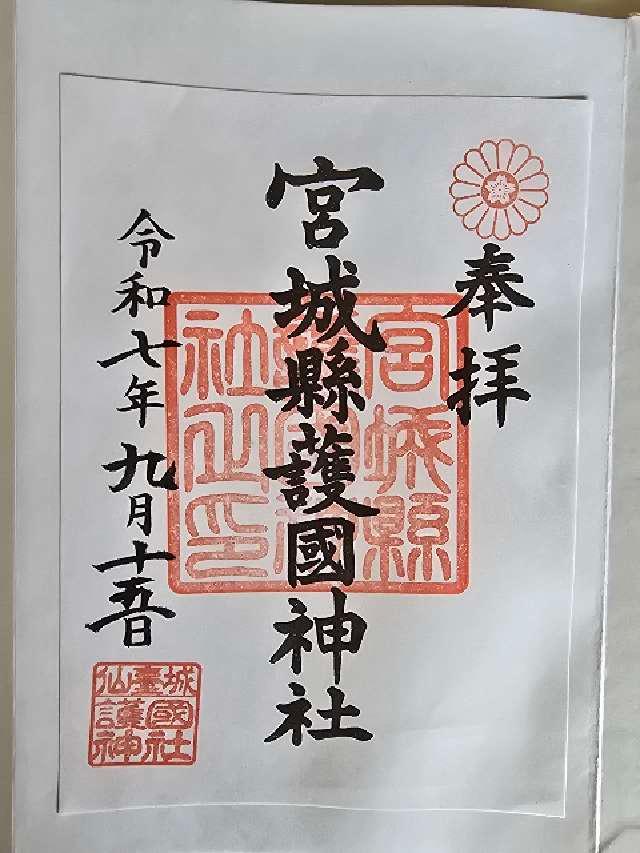 奉拝
宮城縣護國神社
宮城縣護國神社之印
令和七年九月十五日
仙臺城
護國
神社